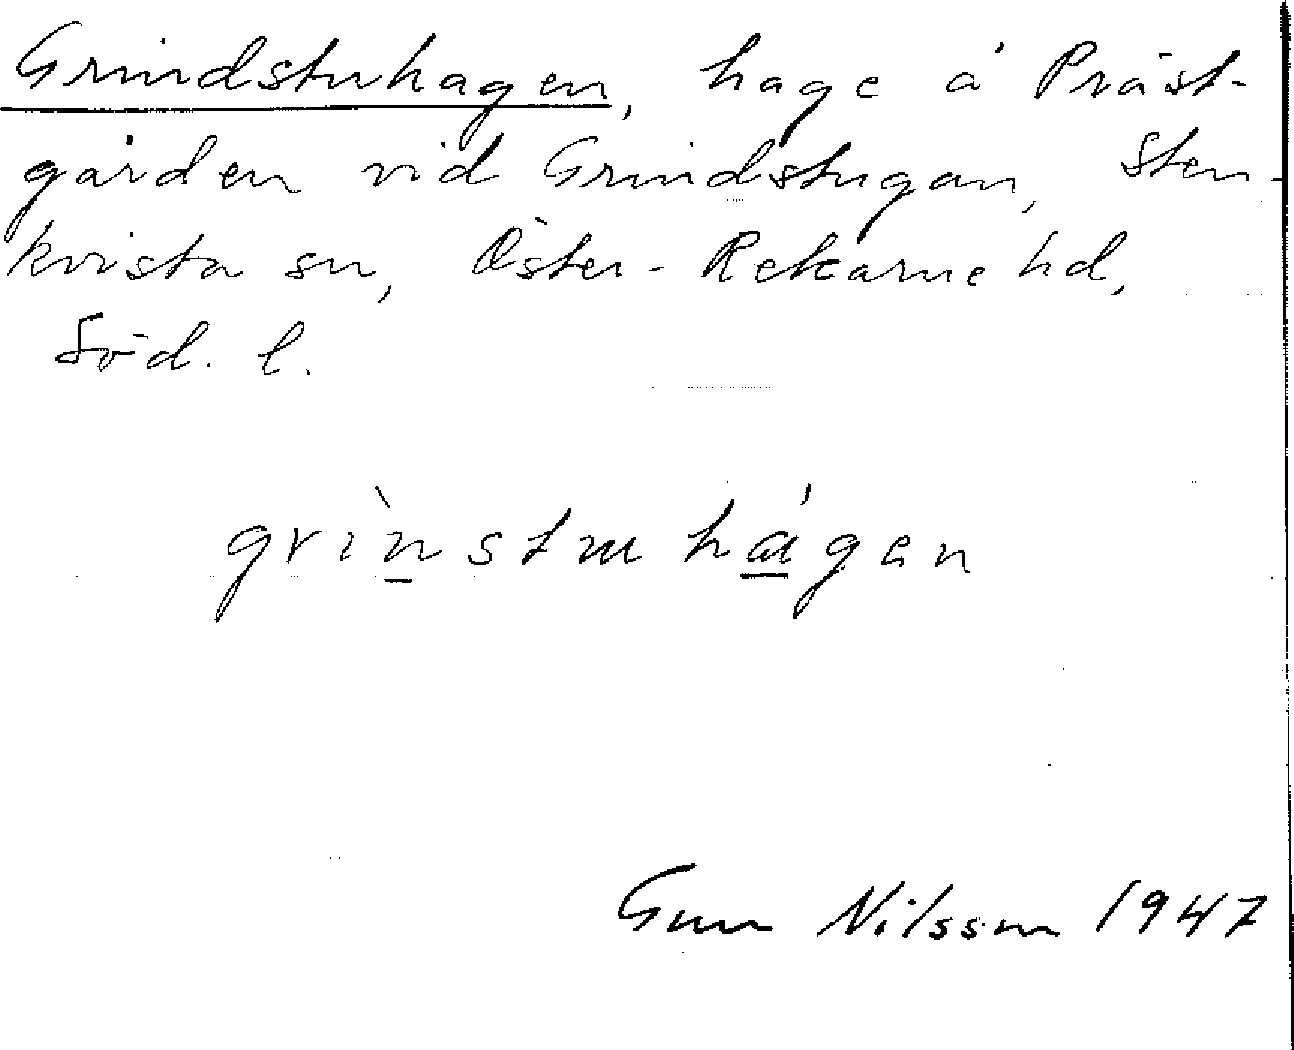 Grindstuhagen, hage å Präst-
gården vid Grindstugan, Sten-
kvista sn, Öster-Rekarne hd,
Söd. l.
grìnstuhágen
Gun Nilsson 1947